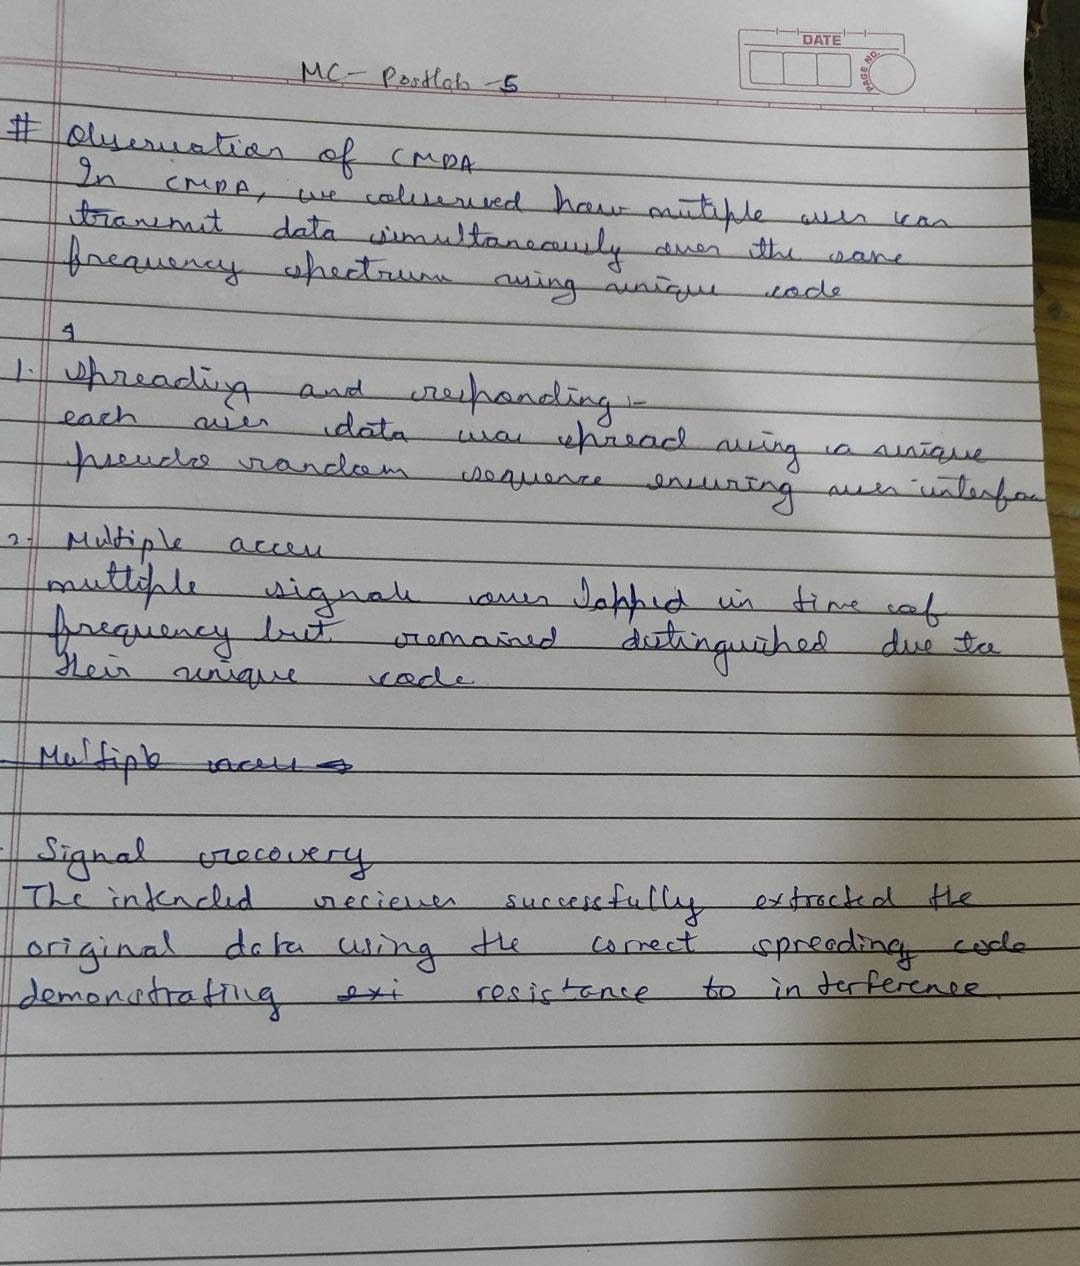 DATE
PAGE NO.
MC - Postlab - 5
# Observation of CMDA
In CMDA, we observed how mutiple user can
transmit data simultaneously over the same
frequency spectrum using unique code
1. spreading and responding :-
each user data was spread using a unique
pseudo random sequence ensuring user
2. Multiple access
multiple signals over lapped in time of
frequency but remained distinguished due to
their unique code
Multiple access →
Signal recovery
The intended reciever successfully extracted the
original data using the correct spreading code
demonstrating exi resistance to interference.